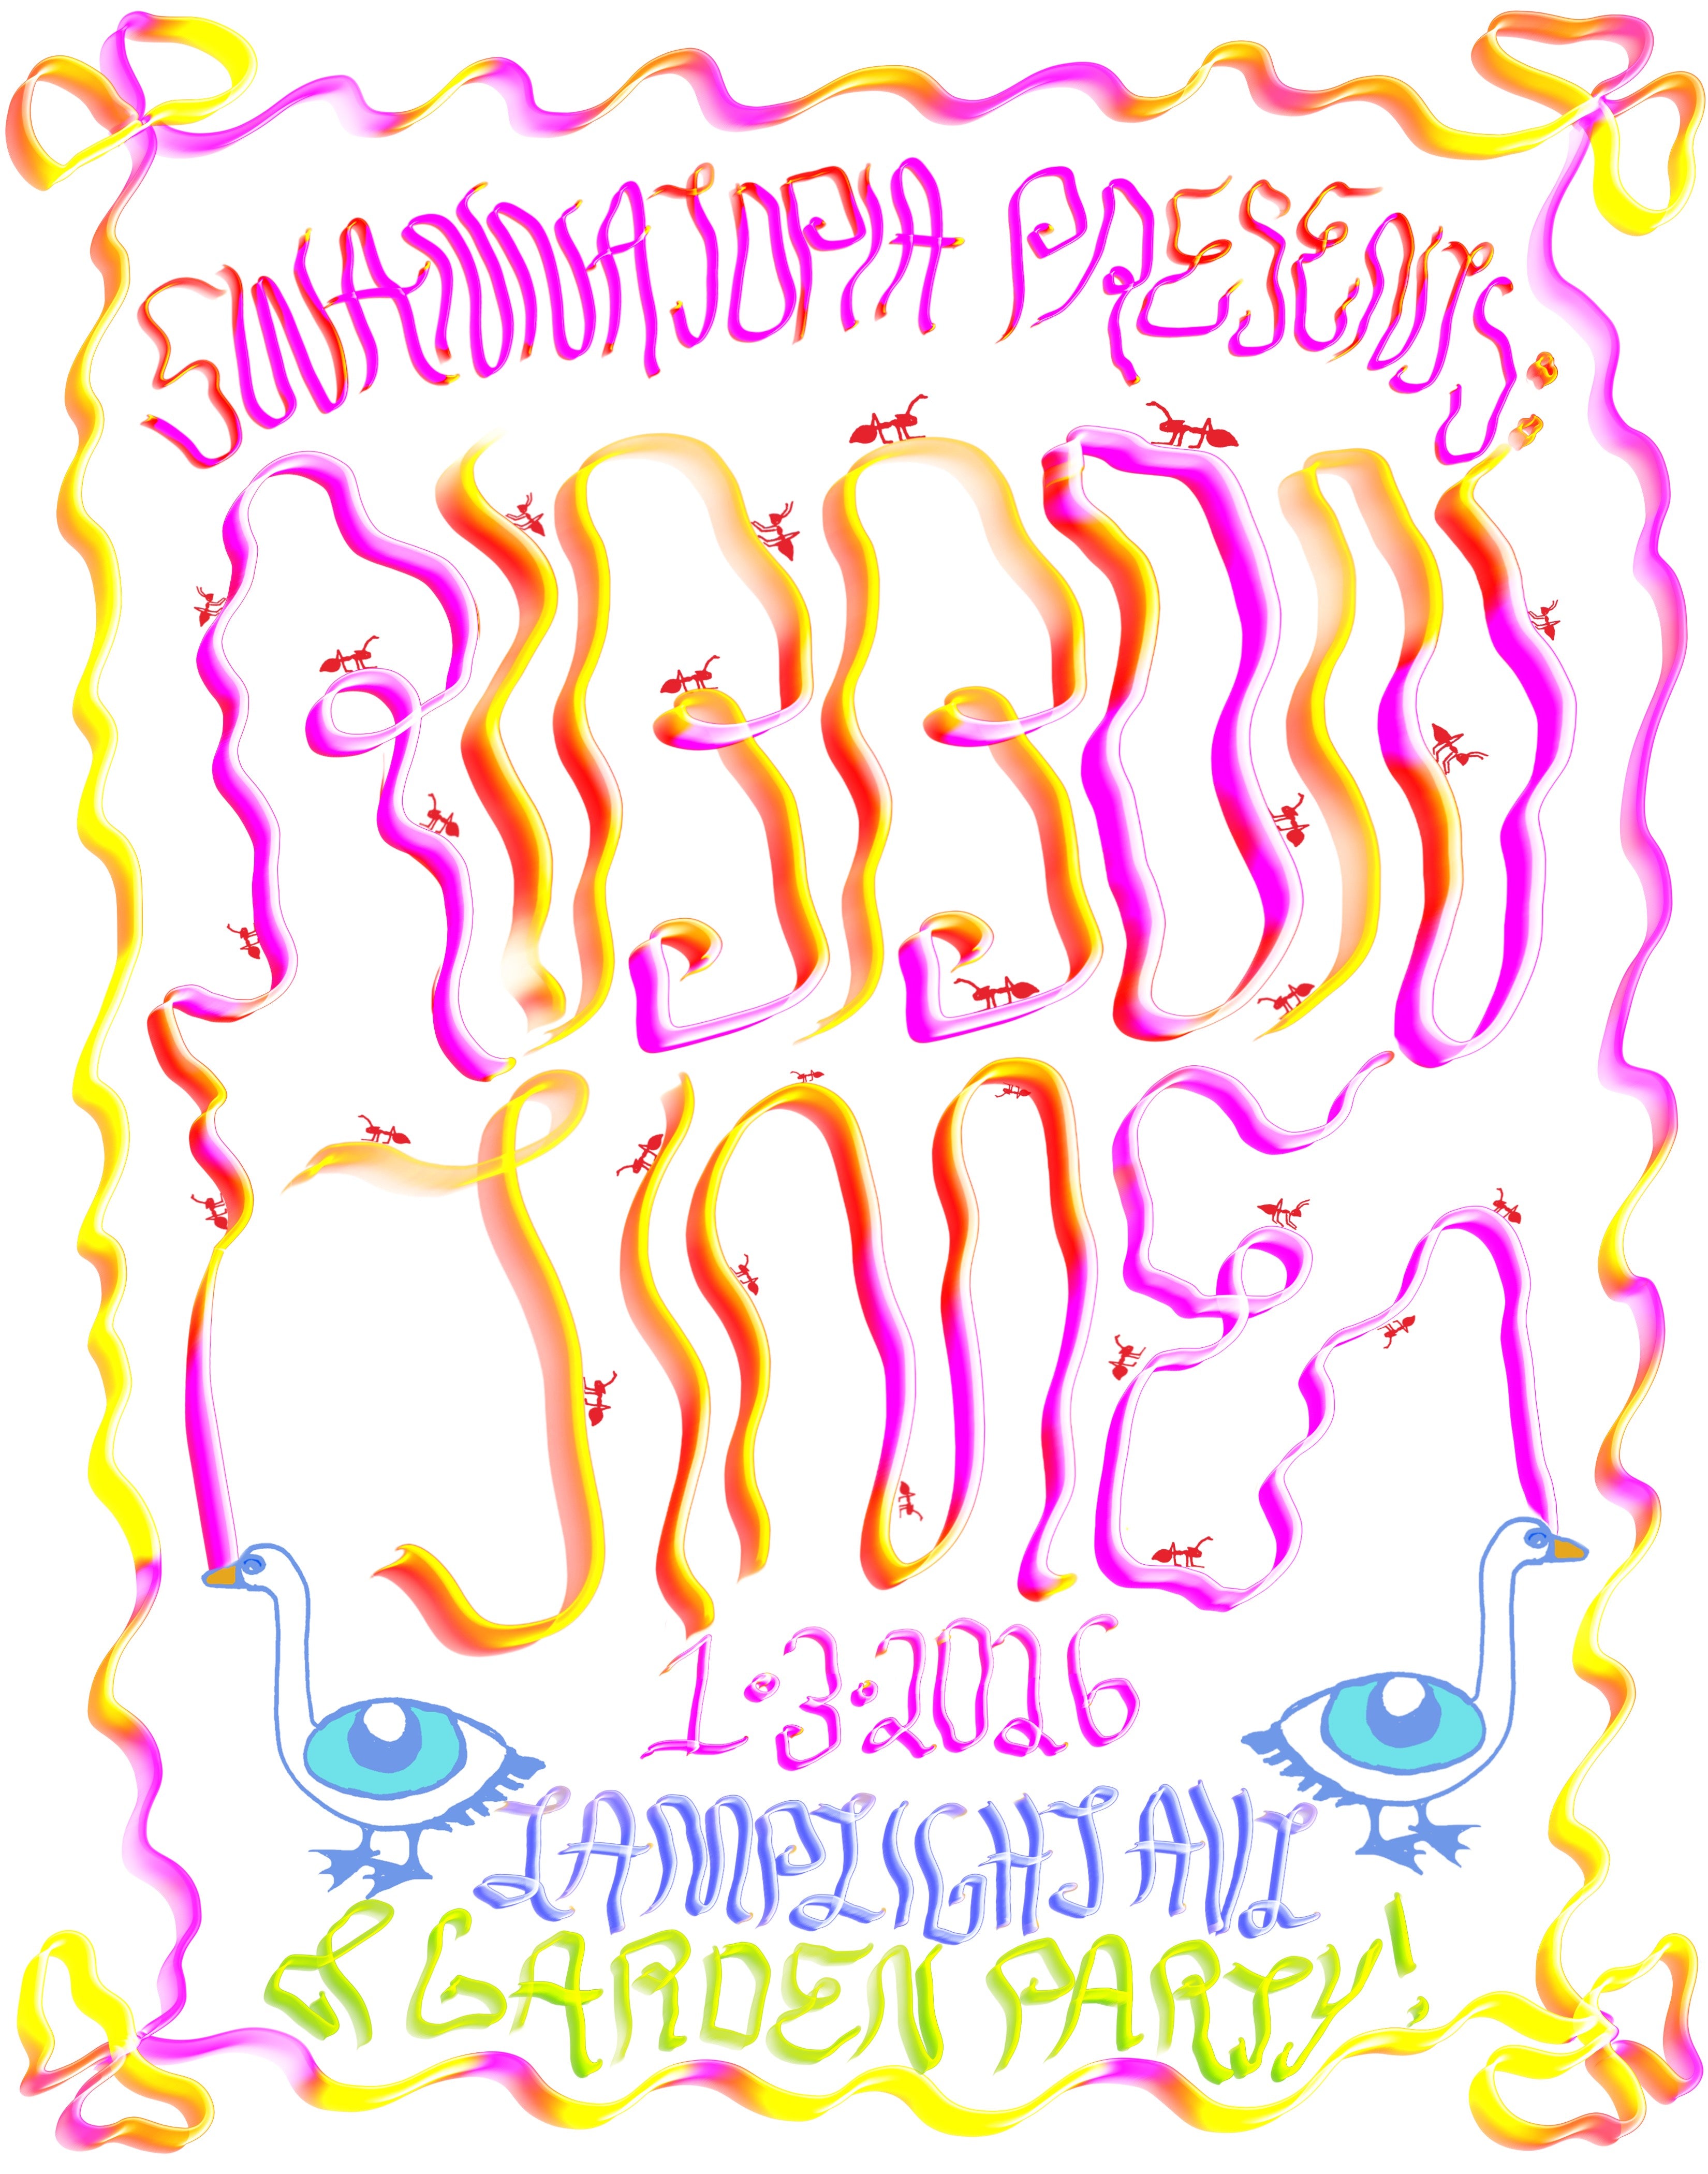 SWANNATOPIA PRESENTS:
RIBBON
TIME
1:3:2026
LAMPLIGHT AVL
& GARDEN PARTY!